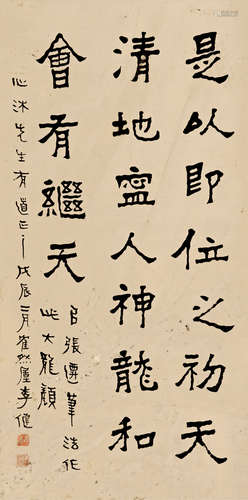 是以即位之初天
清地寧人神龍和
會有繼天
㠯張遷筆法作
此大龍顏
心沐先生有道正之戊辰二月雀然廬李健